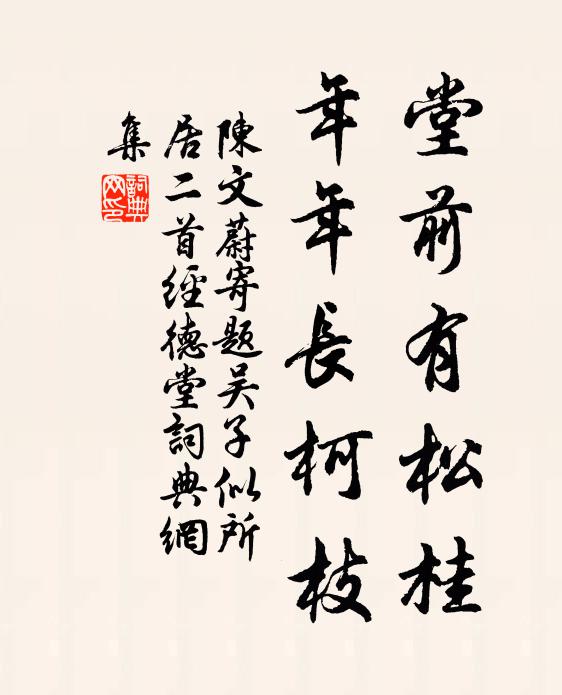 堂前有松桂
年年長柯枝
陳文蔚寄題吴子似所
居二首經德堂詞典網
集
詞典網印